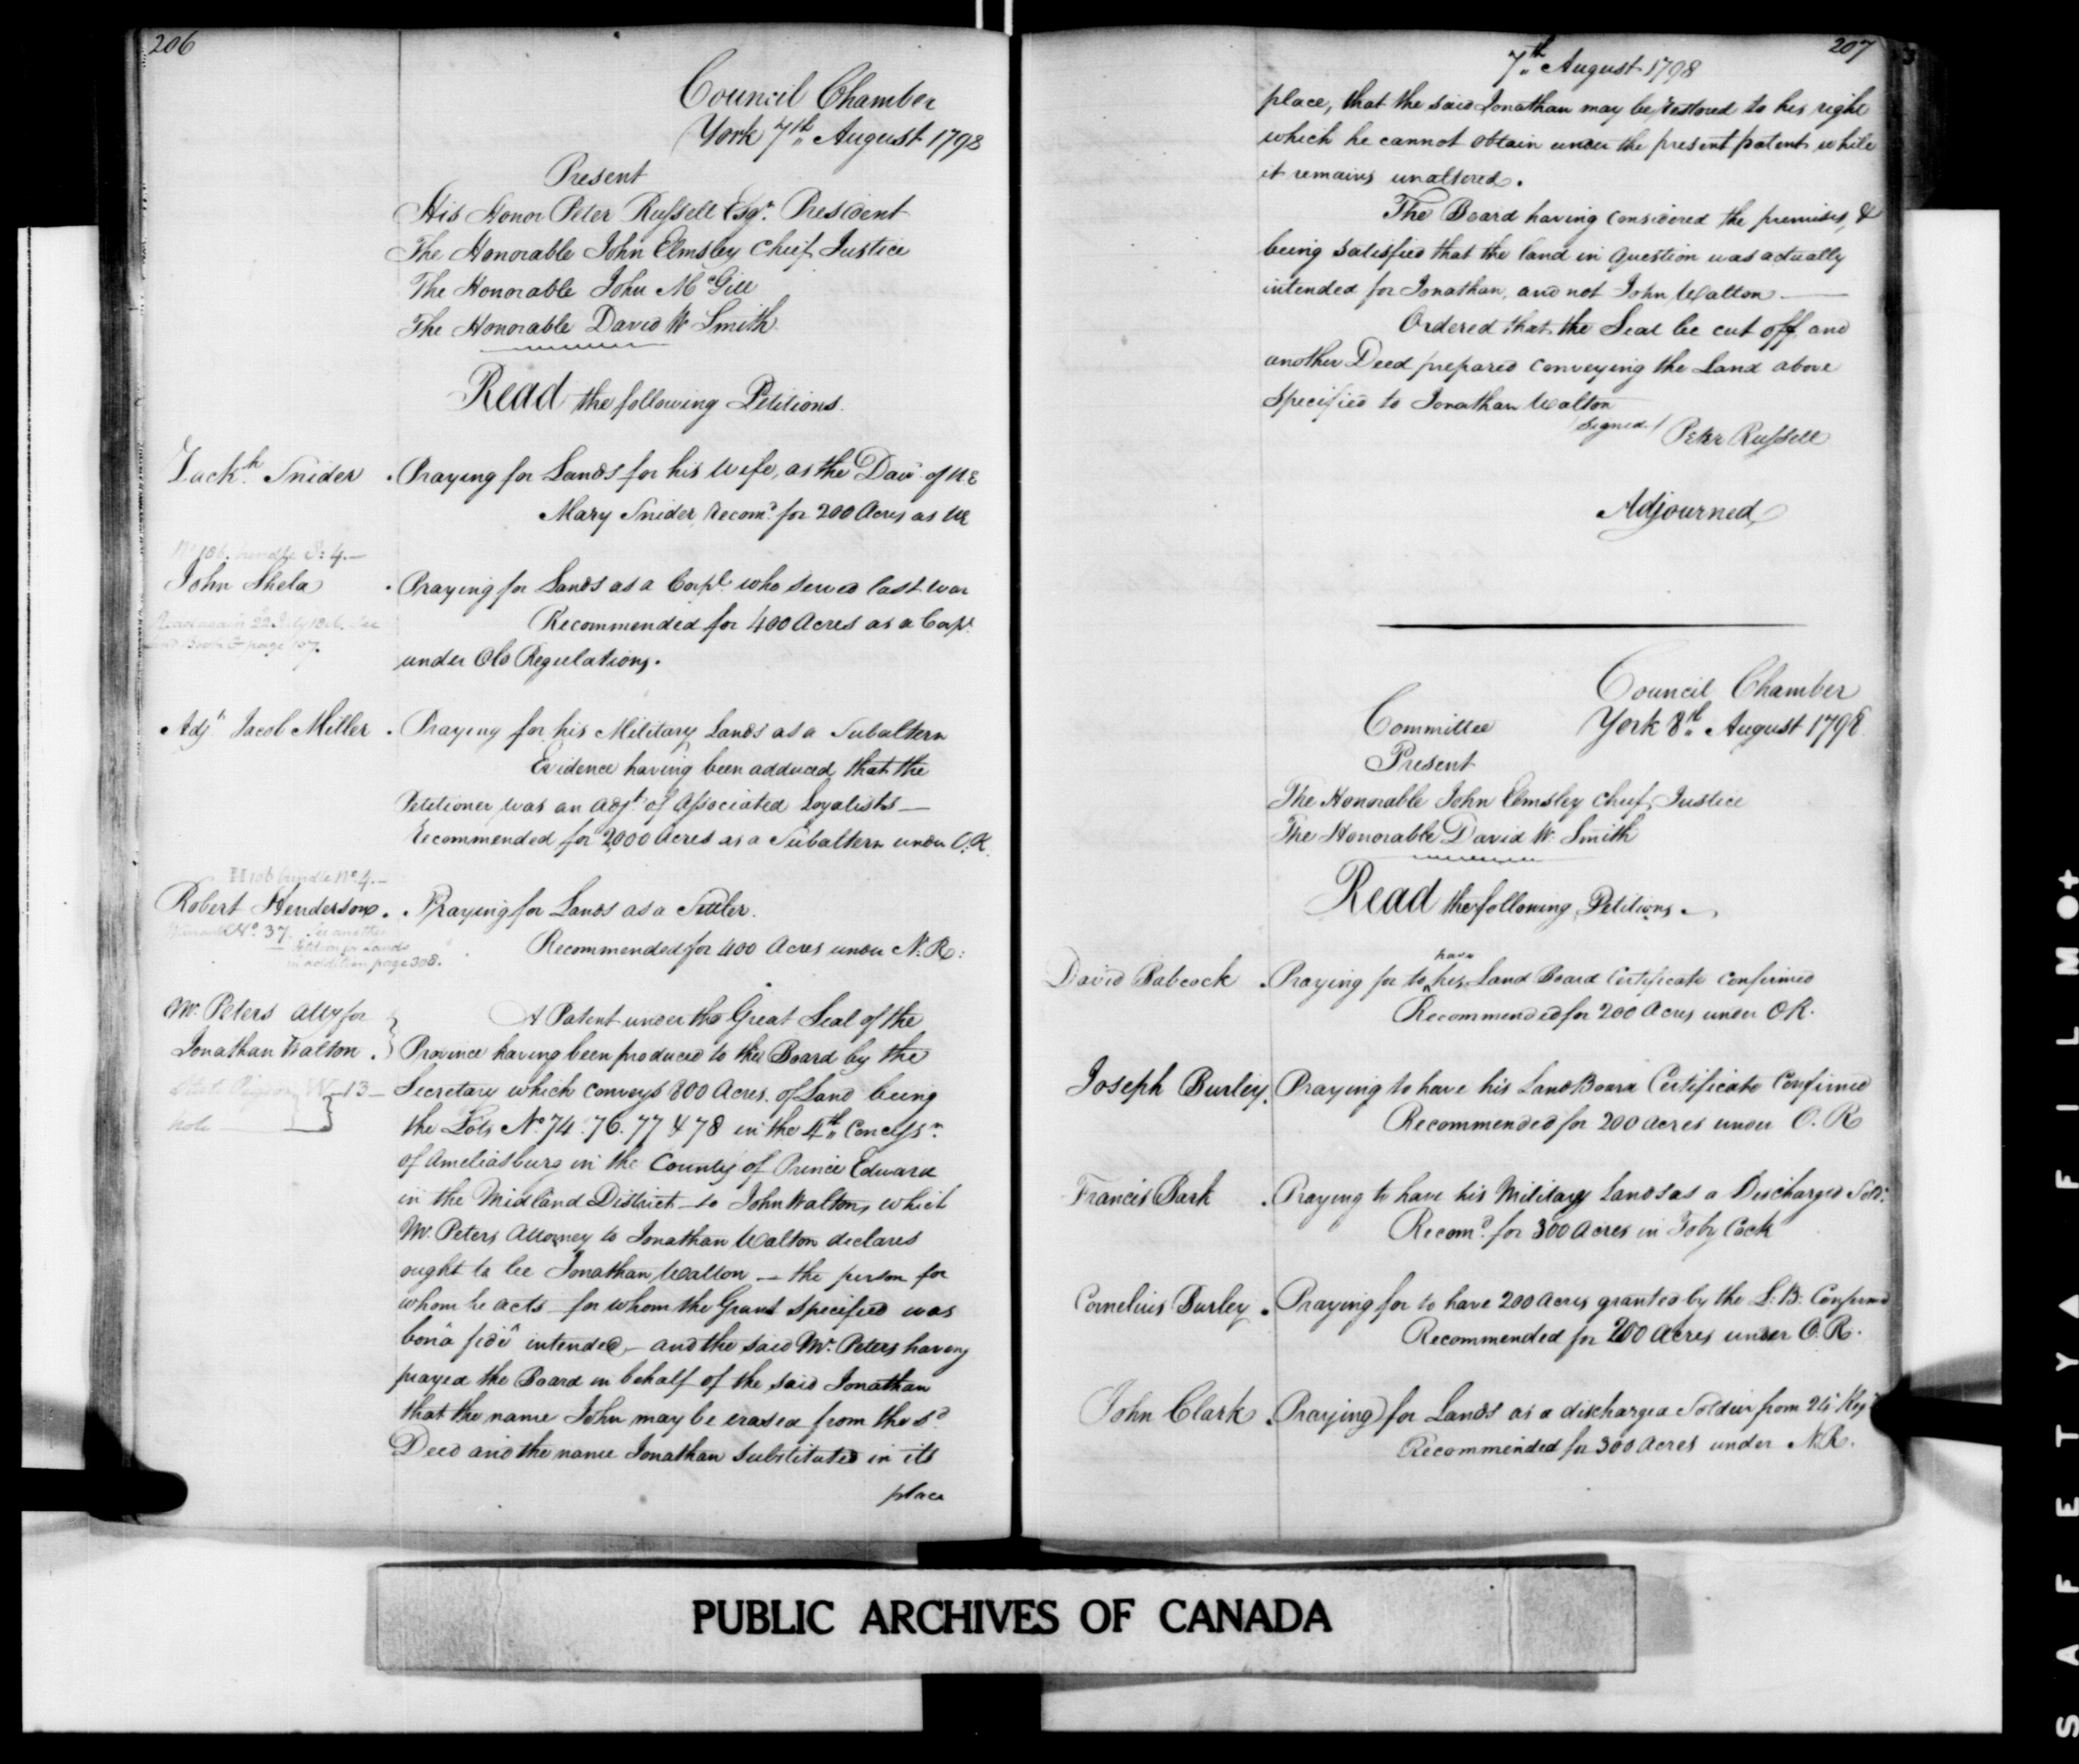 206
Council Chamber
York 7th August 1798
Present
His Honor Peter Russell Esqr. President
The Honorable John Elmsley Chief Justice
The Honorable John McGill
The Honorable David W Smith
Read the following Petitions.
Zackh. Snider . Praying for Lands for his Wife, as the Daur. of UE
Mary Snider, Recomd. for 200 Acres as UE
bundle S: 4.—
John Shela . Praying for Lands as a Corpl. who served last War
Recommended for 400 Acres as a Corpl.
under Old Regulations.
Read again 22 July
Book G page 157.
Adjt. Jacob Miller . Praying for his Military Lands as a Subaltern
Evidence having been adduced, that the
Petitioner was an Adjt. of Associated Loyalists —
Recommended for 2000 Acres as a Subaltern under O.R.
H 106 bundle No. 4.—
Robert Henderson . . Praying for Lands as a Settler.
Recommended for 400 Acres under N.R:
Warrant No. 37. See another
Petition for Lands
in addition page 308.
Mr. Peters Atty for
Jonathan Walton .
W—13—
A Patent under the Great Seal of the
Province having been produced to this Board by the
Secretary which conveys 800 Acres of Land being
the Lots No. 74. 76. 77 & 78 in the 4th Concessn.
of Ameliasburg in the County of Prince Edward
in the Midland District — to John Walton, which
Mr. Peters Attorney to Jonathan Walton declares
ought to be Jonathan Walton — the person for
whom he acts — for whom the Grant specified was
bonâ fidê intended, — and the said Mr. Peters having
prayed the Board in behalf of the said Jonathan
that the name John may be erased from the sd.
Deed and the name Jonathan substituted in its
place
207
7th August 1798
place, that the said Jonathan may be restored to his right
which he cannot obtain under the present patent while
it remains unaltered.
The Board having considered the premises, &
being satisfied that the land in question was actually
intended for Jonathan, and not John Walton —
Ordered that the Seal be cut off and
another Deed prepared conveying the Land above
specified to Jonathan Walton
(signed) Peter Russell
Adjourned
Council Chamber
Committee York 8th August 1798
Present
The Honorable John Elmsley Chief Justice
The Honorable David W. Smith
Read the following Petitions
David Babcock . Praying for to have his Land Board Certificate confirmed
Recommended for 200 Acres under OR.
Joseph Burley . Praying to have his Land Board Certificate Confirmed
Recommended for 200 Acres under O. R
Francis Bark . Praying to have his Military Lands as a Discharged Soldr.
Recomd. for 300 Acres in Toby Cock
Cornelius Burley . Praying for to have 200 Acres granted by the L: B: Confirmed
Recommended for 200 Acres under O. R.
John Clark . Praying for Lands as a discharged Soldier from 24 Regt
Recommended for 300 Acres under N.R.
PUBLIC ARCHIVES OF CANADA
SAFETY▲FILM●+